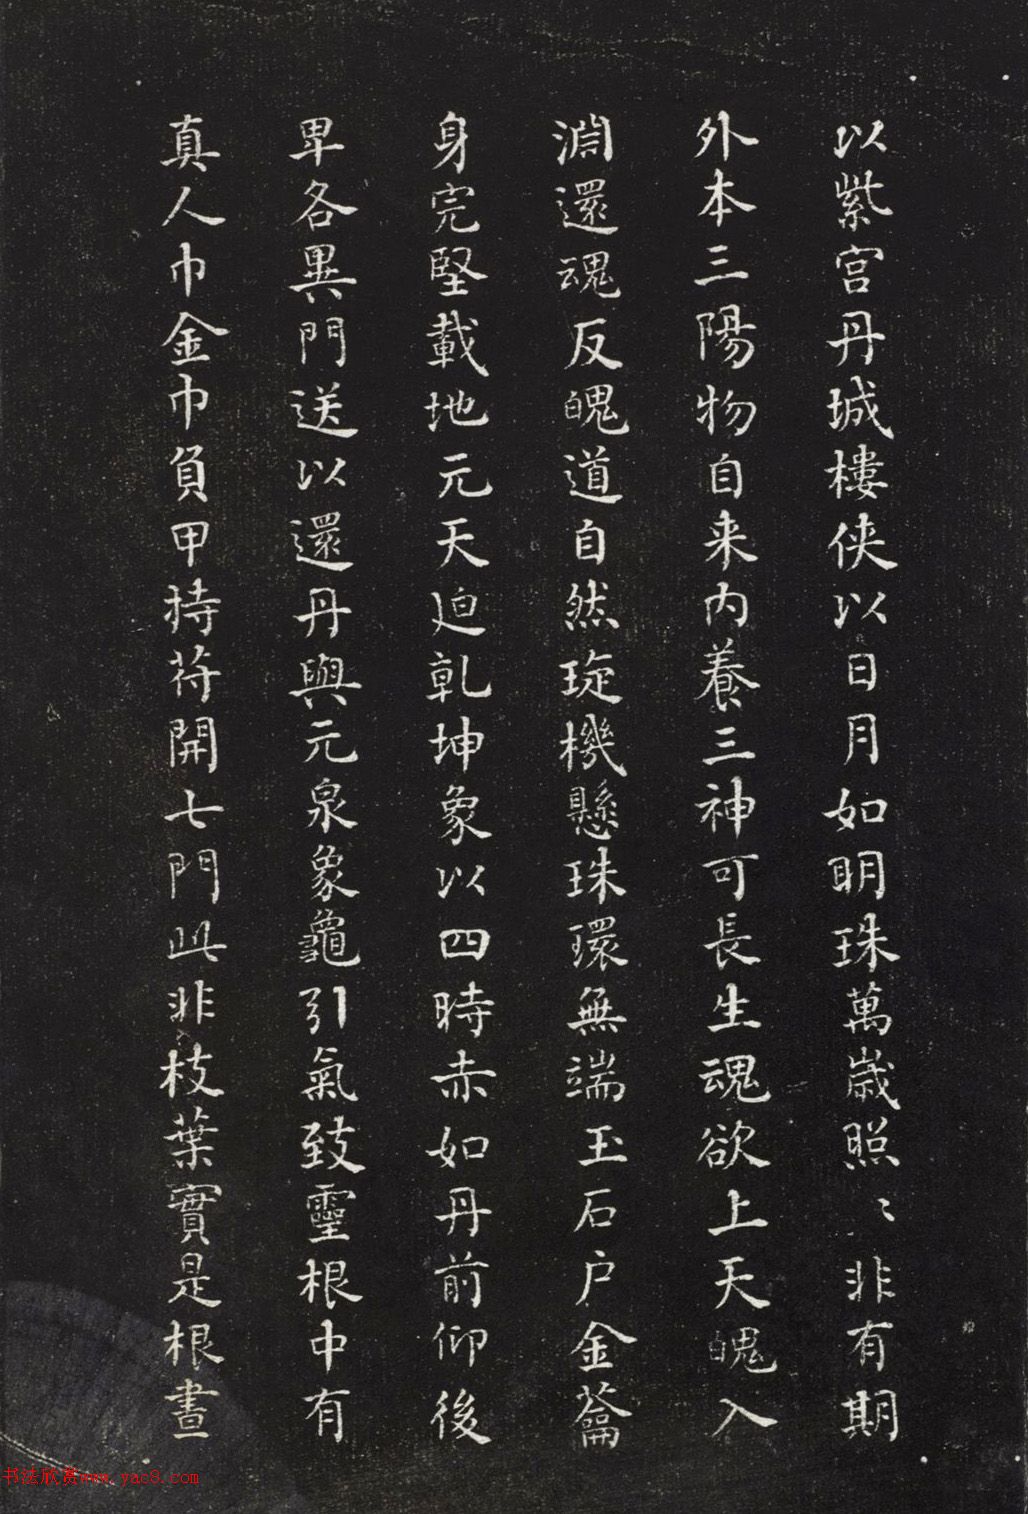 以紫宮丹城樓俠以日月如明珠萬歲照〻非有期
外本三陽物自来內養三神可長生魂欲上天魄入
淵還魂反魄道自然琁機懸珠環無端玉石戶金蘥
身完堅載地元天迫乹坤象以四時赤如丹前仰後
卑各異門送以還丹與元泉象龜引氣致靈根中有
真人巾金巾負甲持苻開七門此非枝葉實是根晝
书法欣赏www.yac8.com